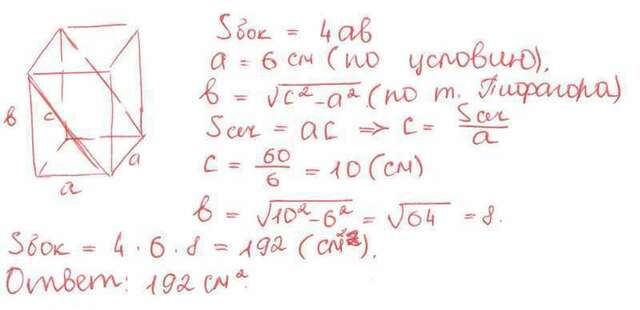 Sбок = 4ab
a = 6 см (по условию),
b = √c²-a² (по т. Пифагора)
Sсеч = ac => c = Sсеч/a
c = 60/6 = 10 (см)
b = √10²-6² = √64 = 8.
Sбок = 4 · 6 · 8 = 192 (см²).
Ответ: 192 см².
в
c
a
a